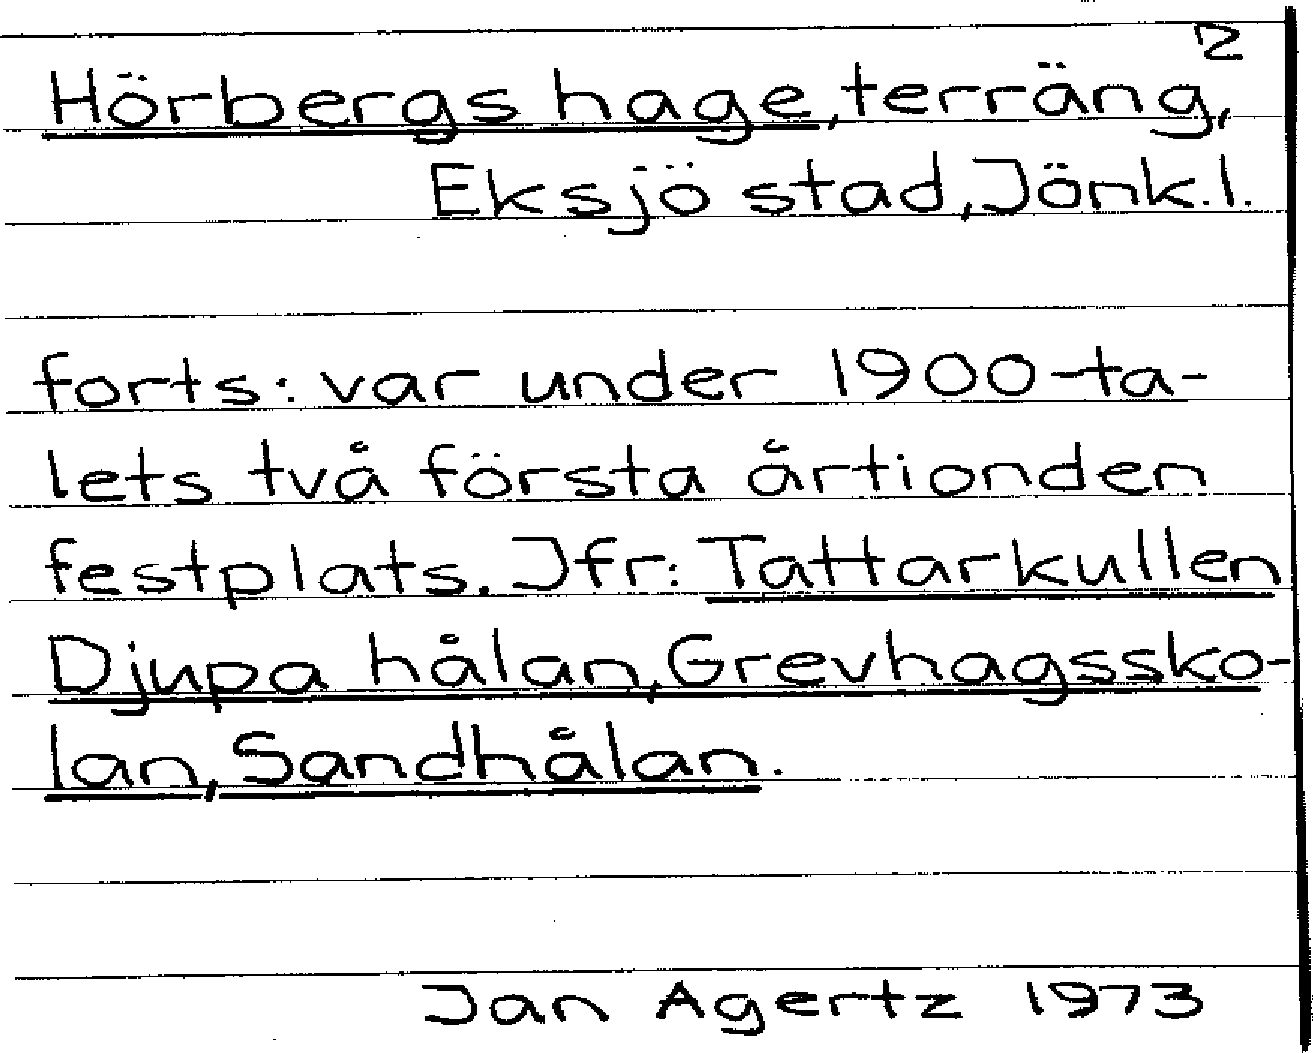 2
Hörbergs hage, terräng,
Eksjö stad, Jönk.l.
forts: var under 1900-ta-
lets två första årtionden
festplats. Jfr: Tattarkullen
Djupa hålan, Grevhagssko-
lan, Sandhålan.
Jan Agertz 1973